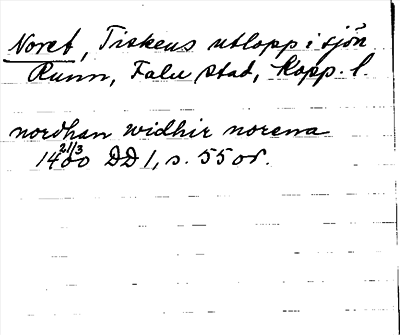 Noret, Tiskens utlopp i sjön
Runn, Falu stad, Kopp. l.
nordhan widhir norena
1400 21/3 DD 1, s. 55 or.